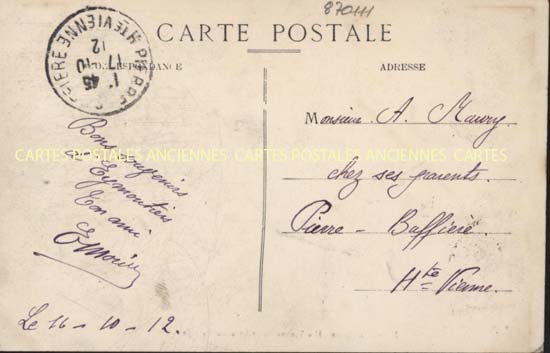 870111
CARTE POSTALE
CORRESPONDANCE
ADRESSE
PIERRE BUFFIERE HTE VIENNE
1* 45
17 - 10
12
Monsieur A. Maury
chez ses parents.
Pierre - Buffière
Hte Vienne.
Bons souvenirs
de Eymoutiers
Ton ami
Le 16 - 10 - 12.
CARTES POSTALES ANCIENNES CARTES POSTALES ANCIENNES CARTES POSTALES ANCIENNES